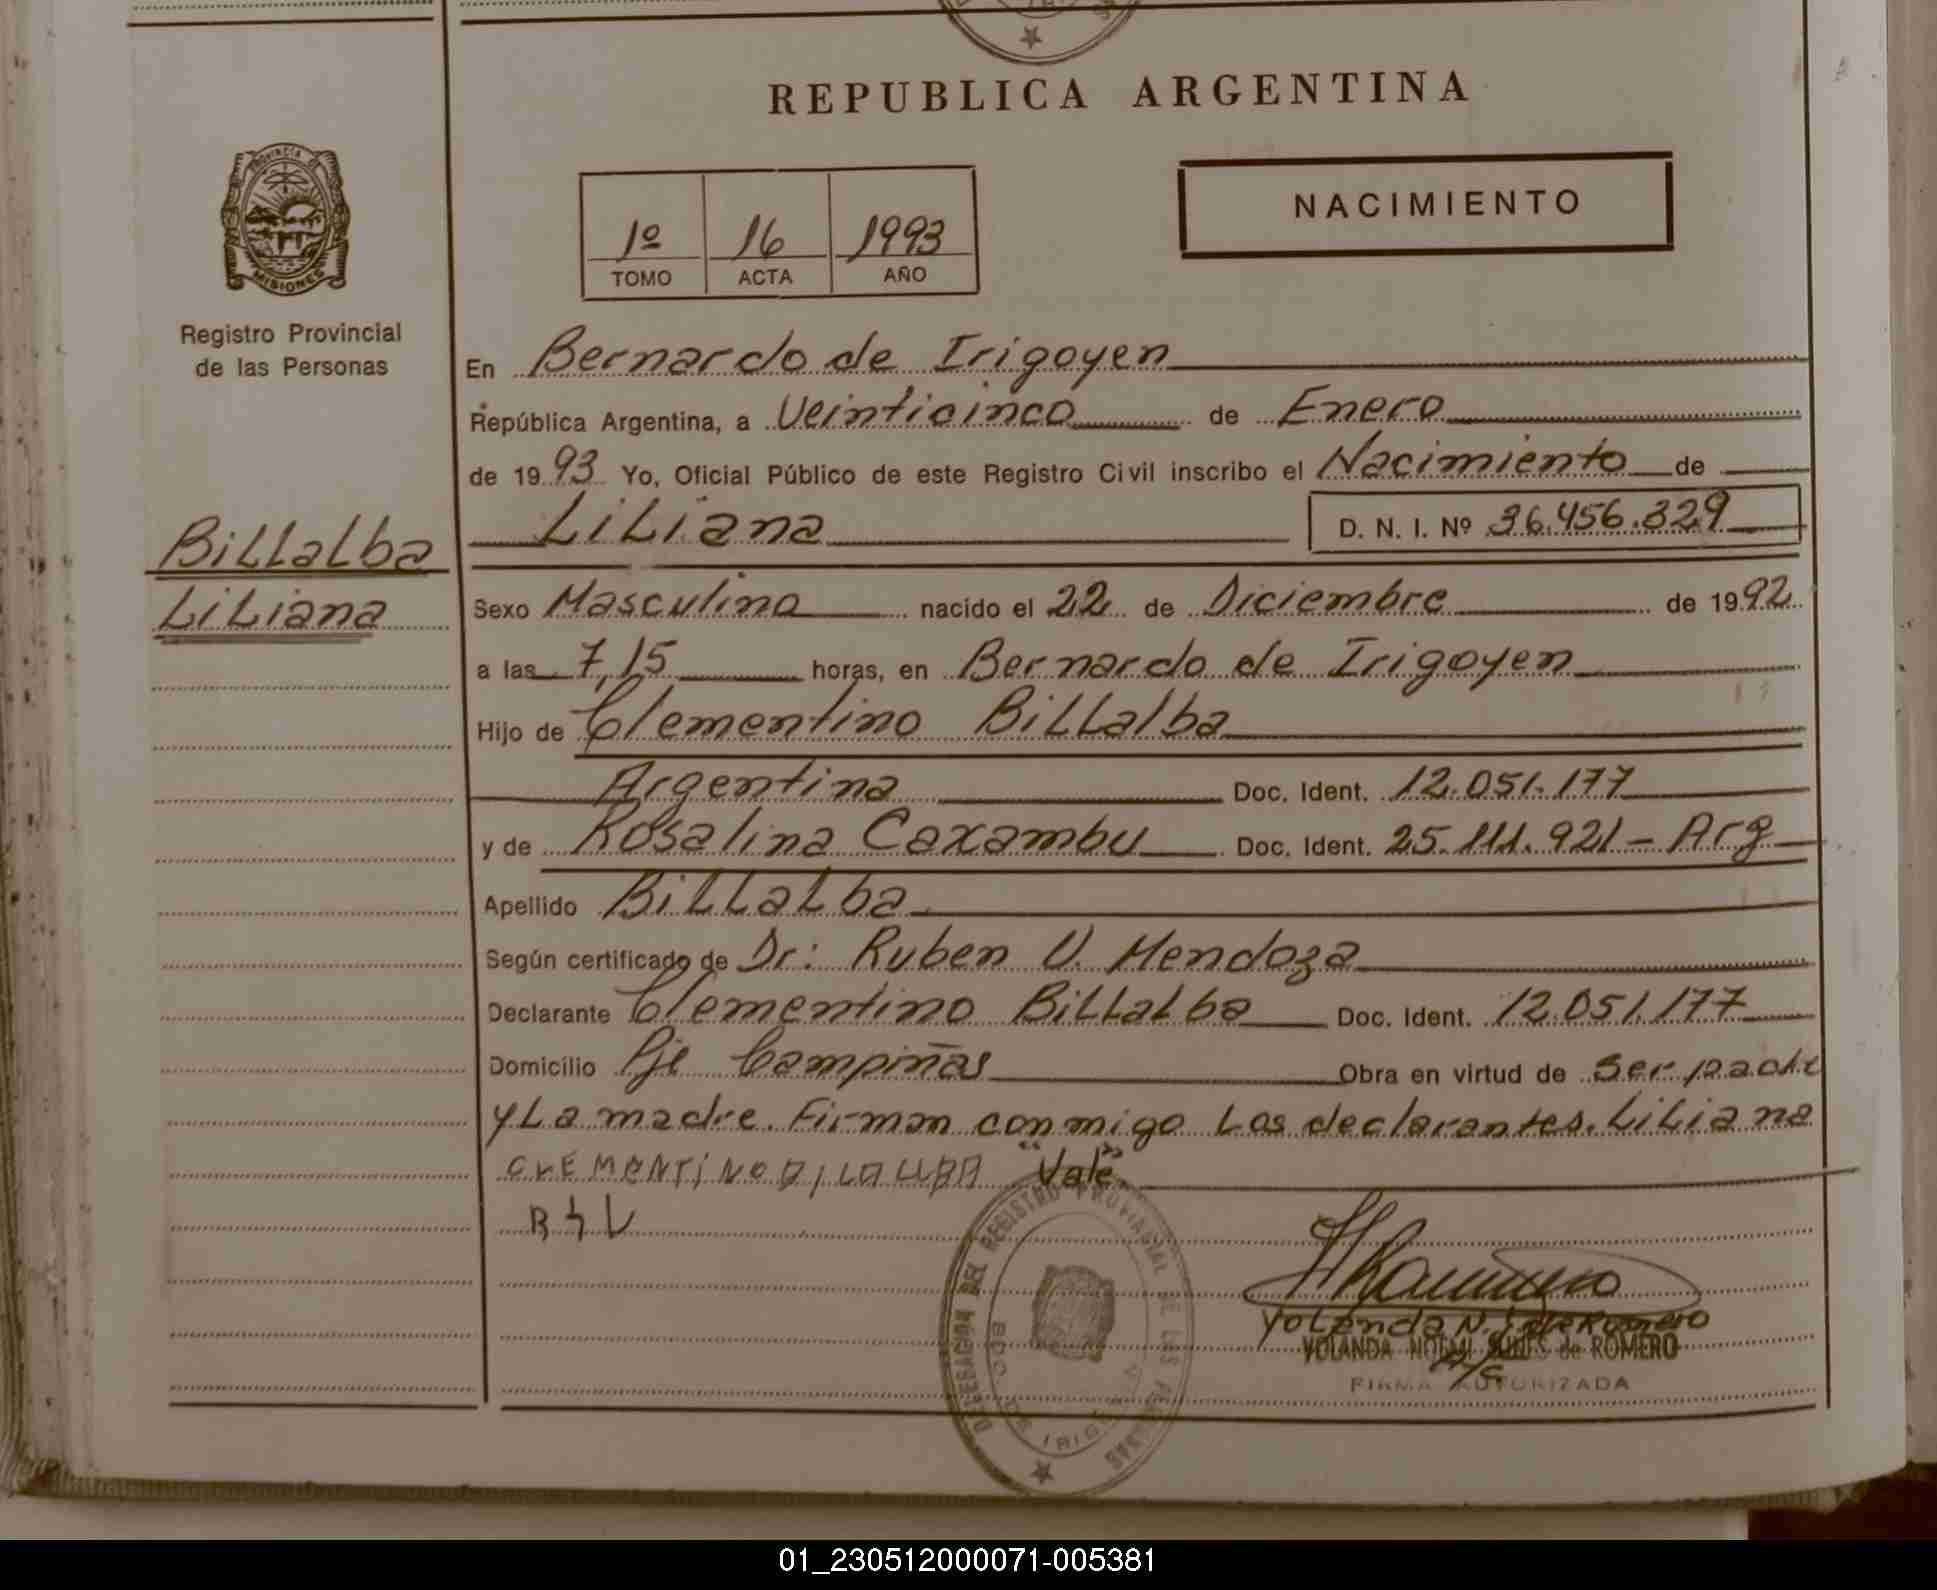 REPUBLICA ARGENTINA
PROVINCIA DE
MISIONES
Registro Provincial
de las Personas
Billalba
Liliana
1º 16 1993
TOMO ACTA AÑO
NACIMIENTO
En Bernardo de Irigoyen
República Argentina, a Veinticinco de Enero
de 1993 Yo, Oficial Público de este Registro Civil inscribo el Nacimiento de
Liliana D. N. I. Nº 36.456.329
Sexo Masculino nacido el 22 de Diciembre de 1992
a las 7,15 horas, en Bernardo de Irigoyen
Hijo de Clementino Billalba
Argentina Doc. Ident. 12.051.177
y de Rosalina Caxambu Doc. Ident. 25.111.921 - Arg
Apellido Billalba
Según certificado de Dr: Ruben V. Mendoza
Declarante Clementino Billalba Doc. Ident. 12.051.177
Domicilio Pje Campiñas Obra en virtud de ser padre
y La madre. Firman conmigo Los declarantes. Liliana
"Vale"
DELEGACIÓN DEL REGISTRO PROVINCIAL DE LAS PERSONAS
BDO. DE IRIGOYEN
YOLANDA NOEMI de ROMERO
FIRMA AUTORIZADA
01_230512000071-005381